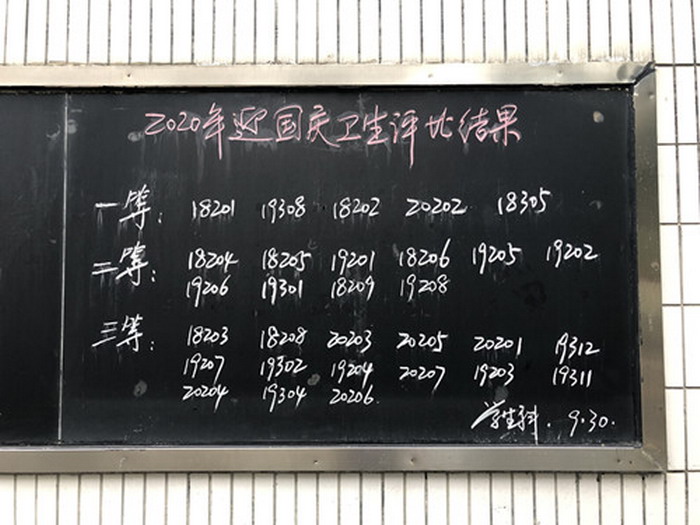 2020年迎国庆卫生评比结果
一等: 18201 19308 18202 20202 18305
二等: 18204 18205 19201 18206 19205 19202
19206 19301 18209 19208
三等: 18203 18208 20203 20205 20201 19312
19207 19302 19204 20207 19203 19311
20204 19304 20206
学生科. 9.30.